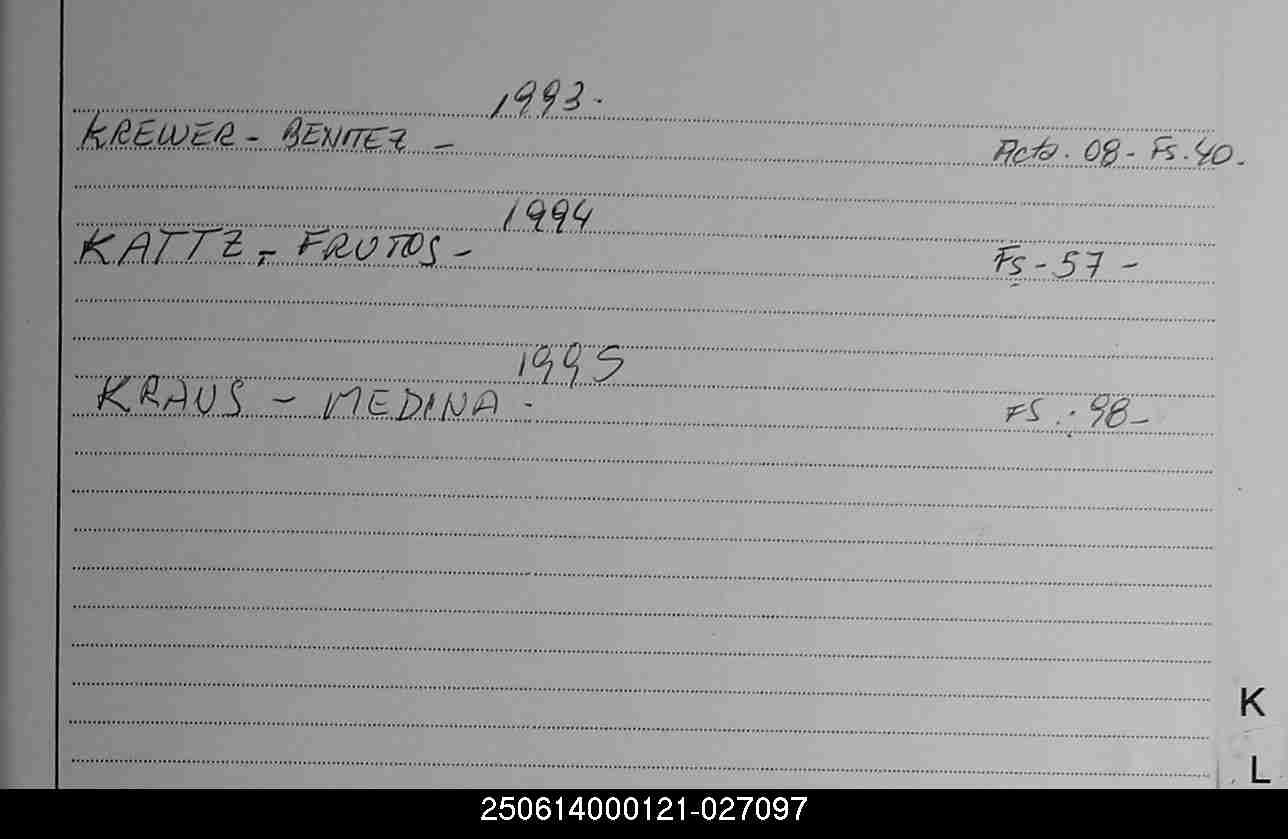 1993.
KREWER - BENITEZ - Acta. 08 - Fs. 40.
1994
KATTZ - FRUTOS - Fs - 57 -
1995
KRAUS - MEDINA. FS. : 98 -
K
L
250614000121-027097